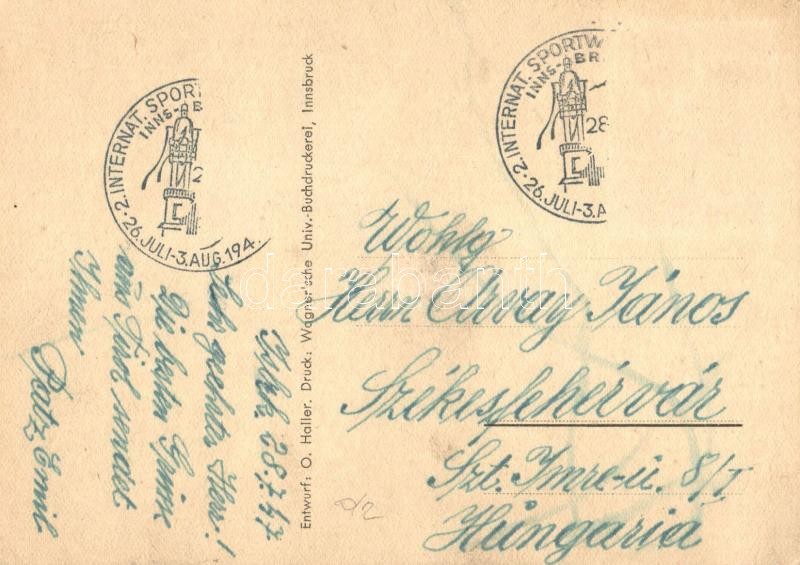 2. INTERNAT. SPORT
INNS-B
2
26. JULI-3. AUG. 194.
2. INTERNAT. SPORTW
INNS-BR
28
26. JULI-3. A
Entwurf: O. Haller. Druck: Wagner'sche Univ.-Buchdruckerei, Innsbruck
28.7.47
geehrter Herr!
Die besten Grüße
aus Tirol sendet
Ihnen
Ratz Emil
Wohlg
Herrn János
Székesfehérvár
Szt. Imre-ú. 8/I
Hungaria
darabanth